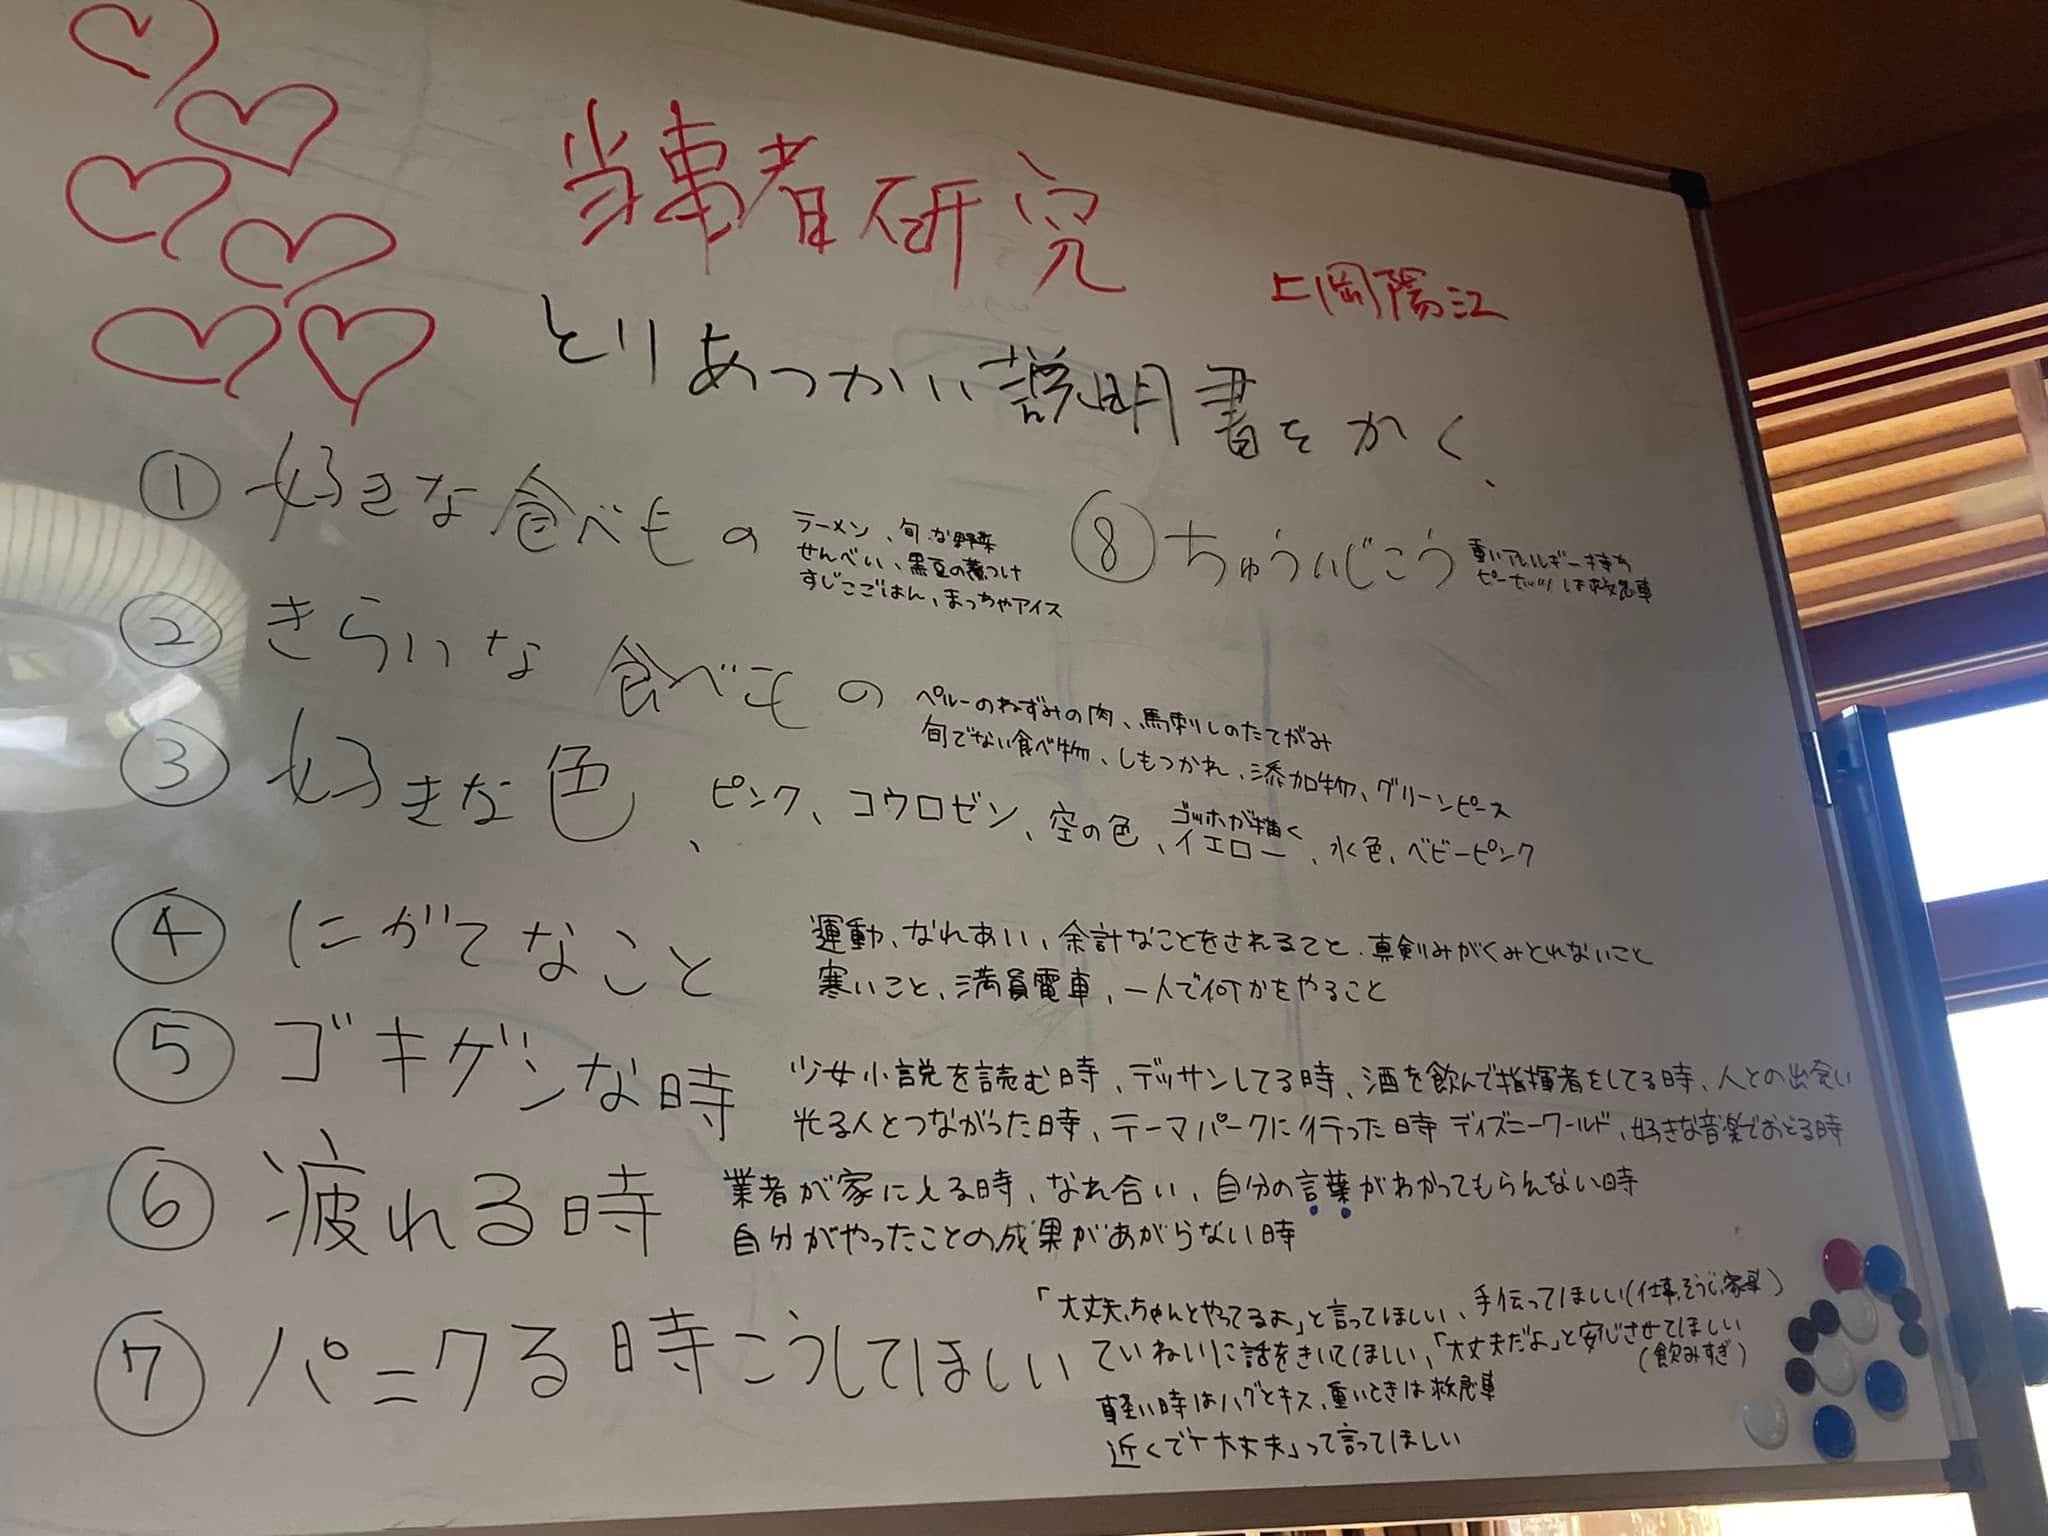 当事者研究
上岡陽江
とりあつかい説明書をかく、
① 好きな食べもの
ラーメン、旬な野菜
せんべい、黒豆の煮つけ
すじこごはん、まっちゃアイス
② きらいな食べもの
ペルーのねずみの肉、馬刺しのたてがみ
旬でない食べ物、しもつかれ、添加物、グリーンピース
③ 好きな色、ピンク、コウロゼン、空の色、ゴッホが描くイエロー、水色、ベビーピンク
④ にがてなこと
運動、なれあい、余計なことをされること、真剣みがくみとれないこと
寒いこと、満員電車、一人で何かをやること
⑤ ゴキゲンな時
少女小説を読む時、デッサンしてる時、酒を飲んで指揮者をしてる時、人との出会い
光る人とつながった時、テーマパークに行った時 ディズニーワールド、好きな音楽でおどる時
⑥ 疲れる時
業者が家にくる時、なれ合い、自分の言葉がわかってもらえない時
自分がやったことの成果があがらない時
⑦ パニクる時こうしてほしい
「大丈夫、ちゃんとやってるよ」と言ってほしい、手伝ってほしい(仕事、そうじ、家事)
ていねいに話をきいてほしい、「大丈夫だよ」と安心させてほしい
(飲みすぎ)
軽い時はハグとキス、重いときは救急車
近くで「大丈夫」って言ってほしい
⑧ ちゅういじこう
重いアレルギー持ち
ピーナッツは救急車